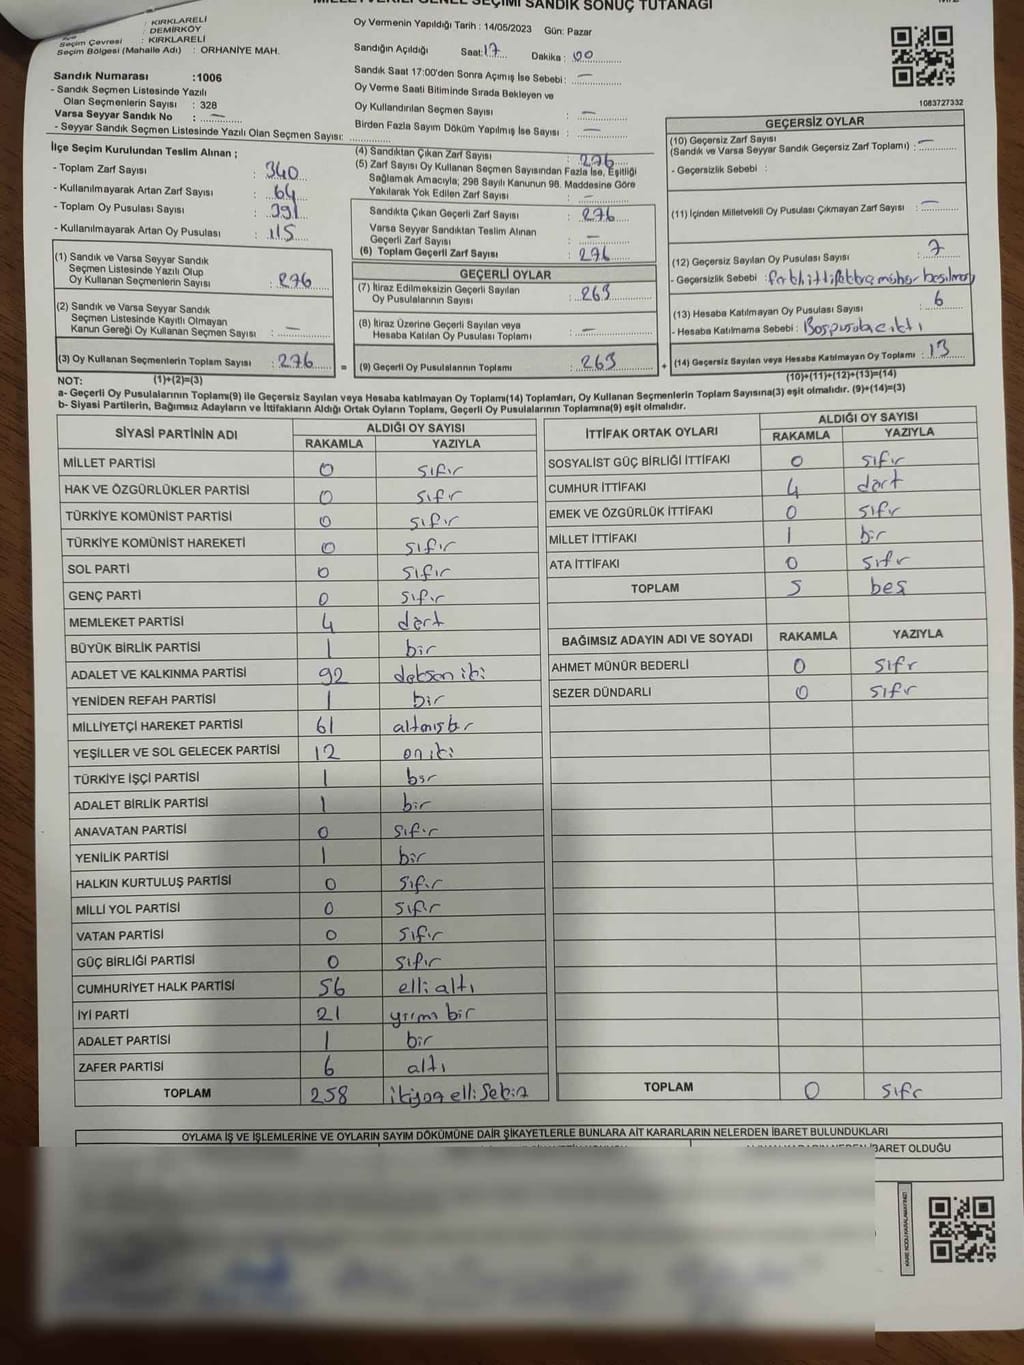 MİLLETVEKİLİ GENEL SEÇİMİ SANDIK SONUÇ TUTANAĞI
: KIRKLARELİ
: DEMİRKÖY
Seçim Çevresi : KIRKLARELİ
Seçim Bölgesi (Mahalle Adı) : ORHANİYE MAH.
Oy Vermenin Yapıldığı Tarih : 14/05/2023 Gün: Pazar
Sandığın Açıldığı Saat: 17 Dakika : 00
Sandık Saat 17:00'den Sonra Açılmış İse Sebebi: —
Oy Verme Saati Bitiminde Sırada Bekleyen ve
Oy Kullandırılan Seçmen Sayısı : —
Birden Fazla Sayım Döküm Yapılmış İse Sayısı : —
1083727332
Sandık Numarası : 1006
- Sandık Seçmen Listesinde Yazılı
Olan Seçmenlerin Sayısı : 328
Varsa Seyyar Sandık No : —
- Seyyar Sandık Seçmen Listesinde Yazılı Olan Seçmen Sayısı:
İlçe Seçim Kurulundan Teslim Alınan ;
- Toplam Zarf Sayısı : 340
- Kullanılmayarak Artan Zarf Sayısı : 64
- Toplam Oy Pusulası Sayısı : 391
- Kullanılmayarak Artan Oy Pusulası : 115
(1) Sandık ve Varsa Seyyar Sandık
Seçmen Listesinde Yazılı Olup
Oy Kullanan Seçmenlerin Sayısı : 276
(2) Sandık ve Varsa Seyyar Sandık
Seçmen Listesinde Kayıtlı Olmayan
Kanun Gereği Oy Kullanan Seçmen Sayısı : —
(3) Oy Kullanan Seçmenlerin Toplam Sayısı : 276
(1)+(2)=(3)
(4) Sandıktan Çıkan Zarf Sayısı : 276
(5) Zarf Sayısı Oy Kullanan Seçmen Sayısından Fazla İse, Eşitliği
Sağlamak Amacıyla; 298 Sayılı Kanunun 98. Maddesine Göre
Yakılarak Yok Edilen Zarf Sayısı : —
Sandıkta Çıkan Geçerli Zarf Sayısı : 276
Varsa Seyyar Sandıktan Teslim Alınan
Geçerli Zarf Sayısı : —
(6) Toplam Geçerli Zarf Sayısı : 276
GEÇERLİ OYLAR
(7) İtiraz Edilmeksizin Geçerli Sayılan
Oy Pusulalarının Sayısı : 263
(8) İtiraz Üzerine Geçerli Sayılan veya
Hesaba Katılan Oy Pusulaları Toplamı : —
= (9) Geçerli Oy Pusulalarının Toplamı : 263
GEÇERSİZ OYLAR
(10) Geçersiz Zarf Sayısı
(Sandık ve Varsa Seyyar Sandık Geçersiz Zarf Toplamı) : —
- Geçersizlik Sebebi :
(11) İçinden Milletvekili Oy Pusulası Çıkmayan Zarf Sayısı : —
(12) Geçersiz Sayılan Oy Pusulası Sayısı : 7
- Geçersizlik Sebebi :
(13) Hesaba Katılmayan Oy Pusulası Sayısı : 6
- Hesaba Katılmama Sebebi : Boş pusula çıktı
+ (14) Geçersiz Sayılan veya Hesaba Katılmayan Oy Toplamı : 13
(10)+(11)+(12)+(13)=(14)
NOT:
a- Geçerli Oy Pusulalarının Toplamı(9) ile Geçersiz Sayılan veya Hesaba Katılmayan Oy Toplamı(14) Toplamları, Oy Kullanan Seçmenlerin Toplam Sayısına(3) eşit olmalıdır. (9)+(14)=(3)
b- Siyasi Partilerin, Bağımsız Adayların ve İttifakların Aldığı Ortak Oyların Toplamı, Geçerli Oy Pusulalarının Toplamına(9) eşit olmalıdır.
SİYASİ PARTİNİN ADI ALDIĞI OY SAYISI
RAKAMLA YAZIYLA
MİLLET PARTİSİ 0 sıfır
HAK VE ÖZGÜRLÜKLER PARTİSİ 0 sıfır
TÜRKİYE KOMÜNİST PARTİSİ 0 sıfır
TÜRKİYE KOMÜNİST HAREKETİ 0 sıfır
SOL PARTİ 0 sıfır
GENÇ PARTİ 0 sıfır
MEMLEKET PARTİSİ 4 dört
BÜYÜK BİRLİK PARTİSİ 1 bir
ADALET VE KALKINMA PARTİSİ 92 doksan iki
YENİDEN REFAH PARTİSİ 1 bir
MİLLİYETÇİ HAREKET PARTİSİ 61 altmışbir
YEŞİLLER VE SOL GELECEK PARTİSİ 12 on iki
TÜRKİYE İŞÇİ PARTİSİ 1 bir
ADALET BİRLİK PARTİSİ 1 bir
ANAVATAN PARTİSİ 0 sıfır
YENİLİK PARTİSİ 1 bir
HALKIN KURTULUŞ PARTİSİ 0 sıfır
MİLLİ YOL PARTİSİ 0 sıfır
VATAN PARTİSİ 0 sıfır
GÜÇ BİRLİĞİ PARTİSİ 0 sıfır
CUMHURİYET HALK PARTİSİ 56 elli altı
İYİ PARTİ 21 yırmı bir
ADALET PARTİSİ 1 bir
ZAFER PARTİSİ 6 altı
TOPLAM 258 ikiyüz elli sekiz
İTTİFAK ORTAK OYLARI ALDIĞI OY SAYISI
RAKAMLA YAZIYLA
SOSYALİST GÜÇ BİRLİĞİ İTTİFAKI 0 sıfır
CUMHUR İTTİFAKI 4 dört
EMEK VE ÖZGÜRLÜK İTTİFAKI 0 sıfır
MİLLET İTTİFAKI 1 bir
ATA İTTİFAKI 0 sıfır
TOPLAM 5 beş
BAĞIMSIZ ADAYIN ADI VE SOYADI RAKAMLA YAZIYLA
AHMET MÜNÜR BEDERLİ 0 sıfır
SEZER DÜNDARLI 0 sıfır
TOPLAM 0 sıfır
OYLAMA İŞ VE İŞLEMLERİNE VE OYLARIN SAYIM DÖKÜMÜNE DAİR ŞİKAYETLERLE BUNLARA AİT KARARLARIN NELERDEN İBARET BULUNDUKLARI
İBARET OLDUĞU
KARE KODU KARALAMAYINIZ!